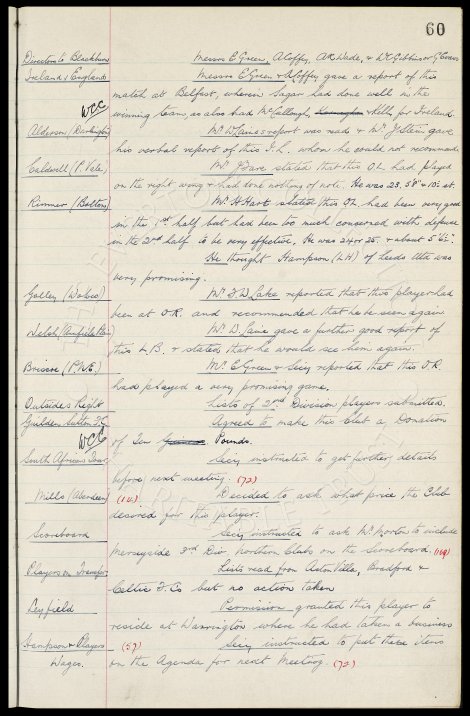 60
Directors to Blackburn Messrs E Green, A Coffey, A R Wade, & W C Gibbins & G Evans
Ireland v England Messrs E Green & A Coffey gave a report of this
match at Belfast, wherein Sagar had done well in the
WCC
winning team, as also had McCullough, & Kelly for Ireland
Alderson (Darlington) Mr W Laine's report was read & Mr J Stein gave
his verbal report of this I.L. whom he could not recommend
Caldwell (P. Vale) Mr J Dare stated that this O.L had played
on the right wing & had done nothing of note. He was 23. 5'8" & 10st.
Rimmer (Bolton) Mr H Hart stated this O.L had been very good
in the 1st half but had been too much concerned with defence
in the 2nd half to be very effective, He was 24 or 25. & about 5'
He thought Hampson (L.H) of Leeds Utd was
very promising.
Galley (Wolves) Mr F W Lake reported that this player had
been at O.R. and recommended that he be seen again
Welsh (Fairfield) Mr W. Laine gave a further good report of
this L.B. & stated that he would see him again.
Briscoe (P.N.E.) Mr E Green & Secy reported that this O.R.
had played a very promising game.
Outsides Right Lists of 2nd Division players submitted.
Sutton F.C Agreed to make this Club a Donation
WCC
of Ten Pounds.
South African Tour Secy instructed to get further details
before next meeting. (72)
Mills (Aberdeen) (14) Decided to ask what price the Club
desired for this player.
Scoreboard Secy instructed to ask Mr Morton to include
Merseyside 3rd Div. Northern Clubs on the Scoreboard. (104)
Players on Transfer Lists read from Aston Villa, Bradford &
Celtic F. Co but no action taken
Leyfield Permission granted this player to
reside at Warrington where he had taken a business
Hampson & Players (57) Secy instructed to put these items
Wages. on the Agenda for next Meeting. (72)